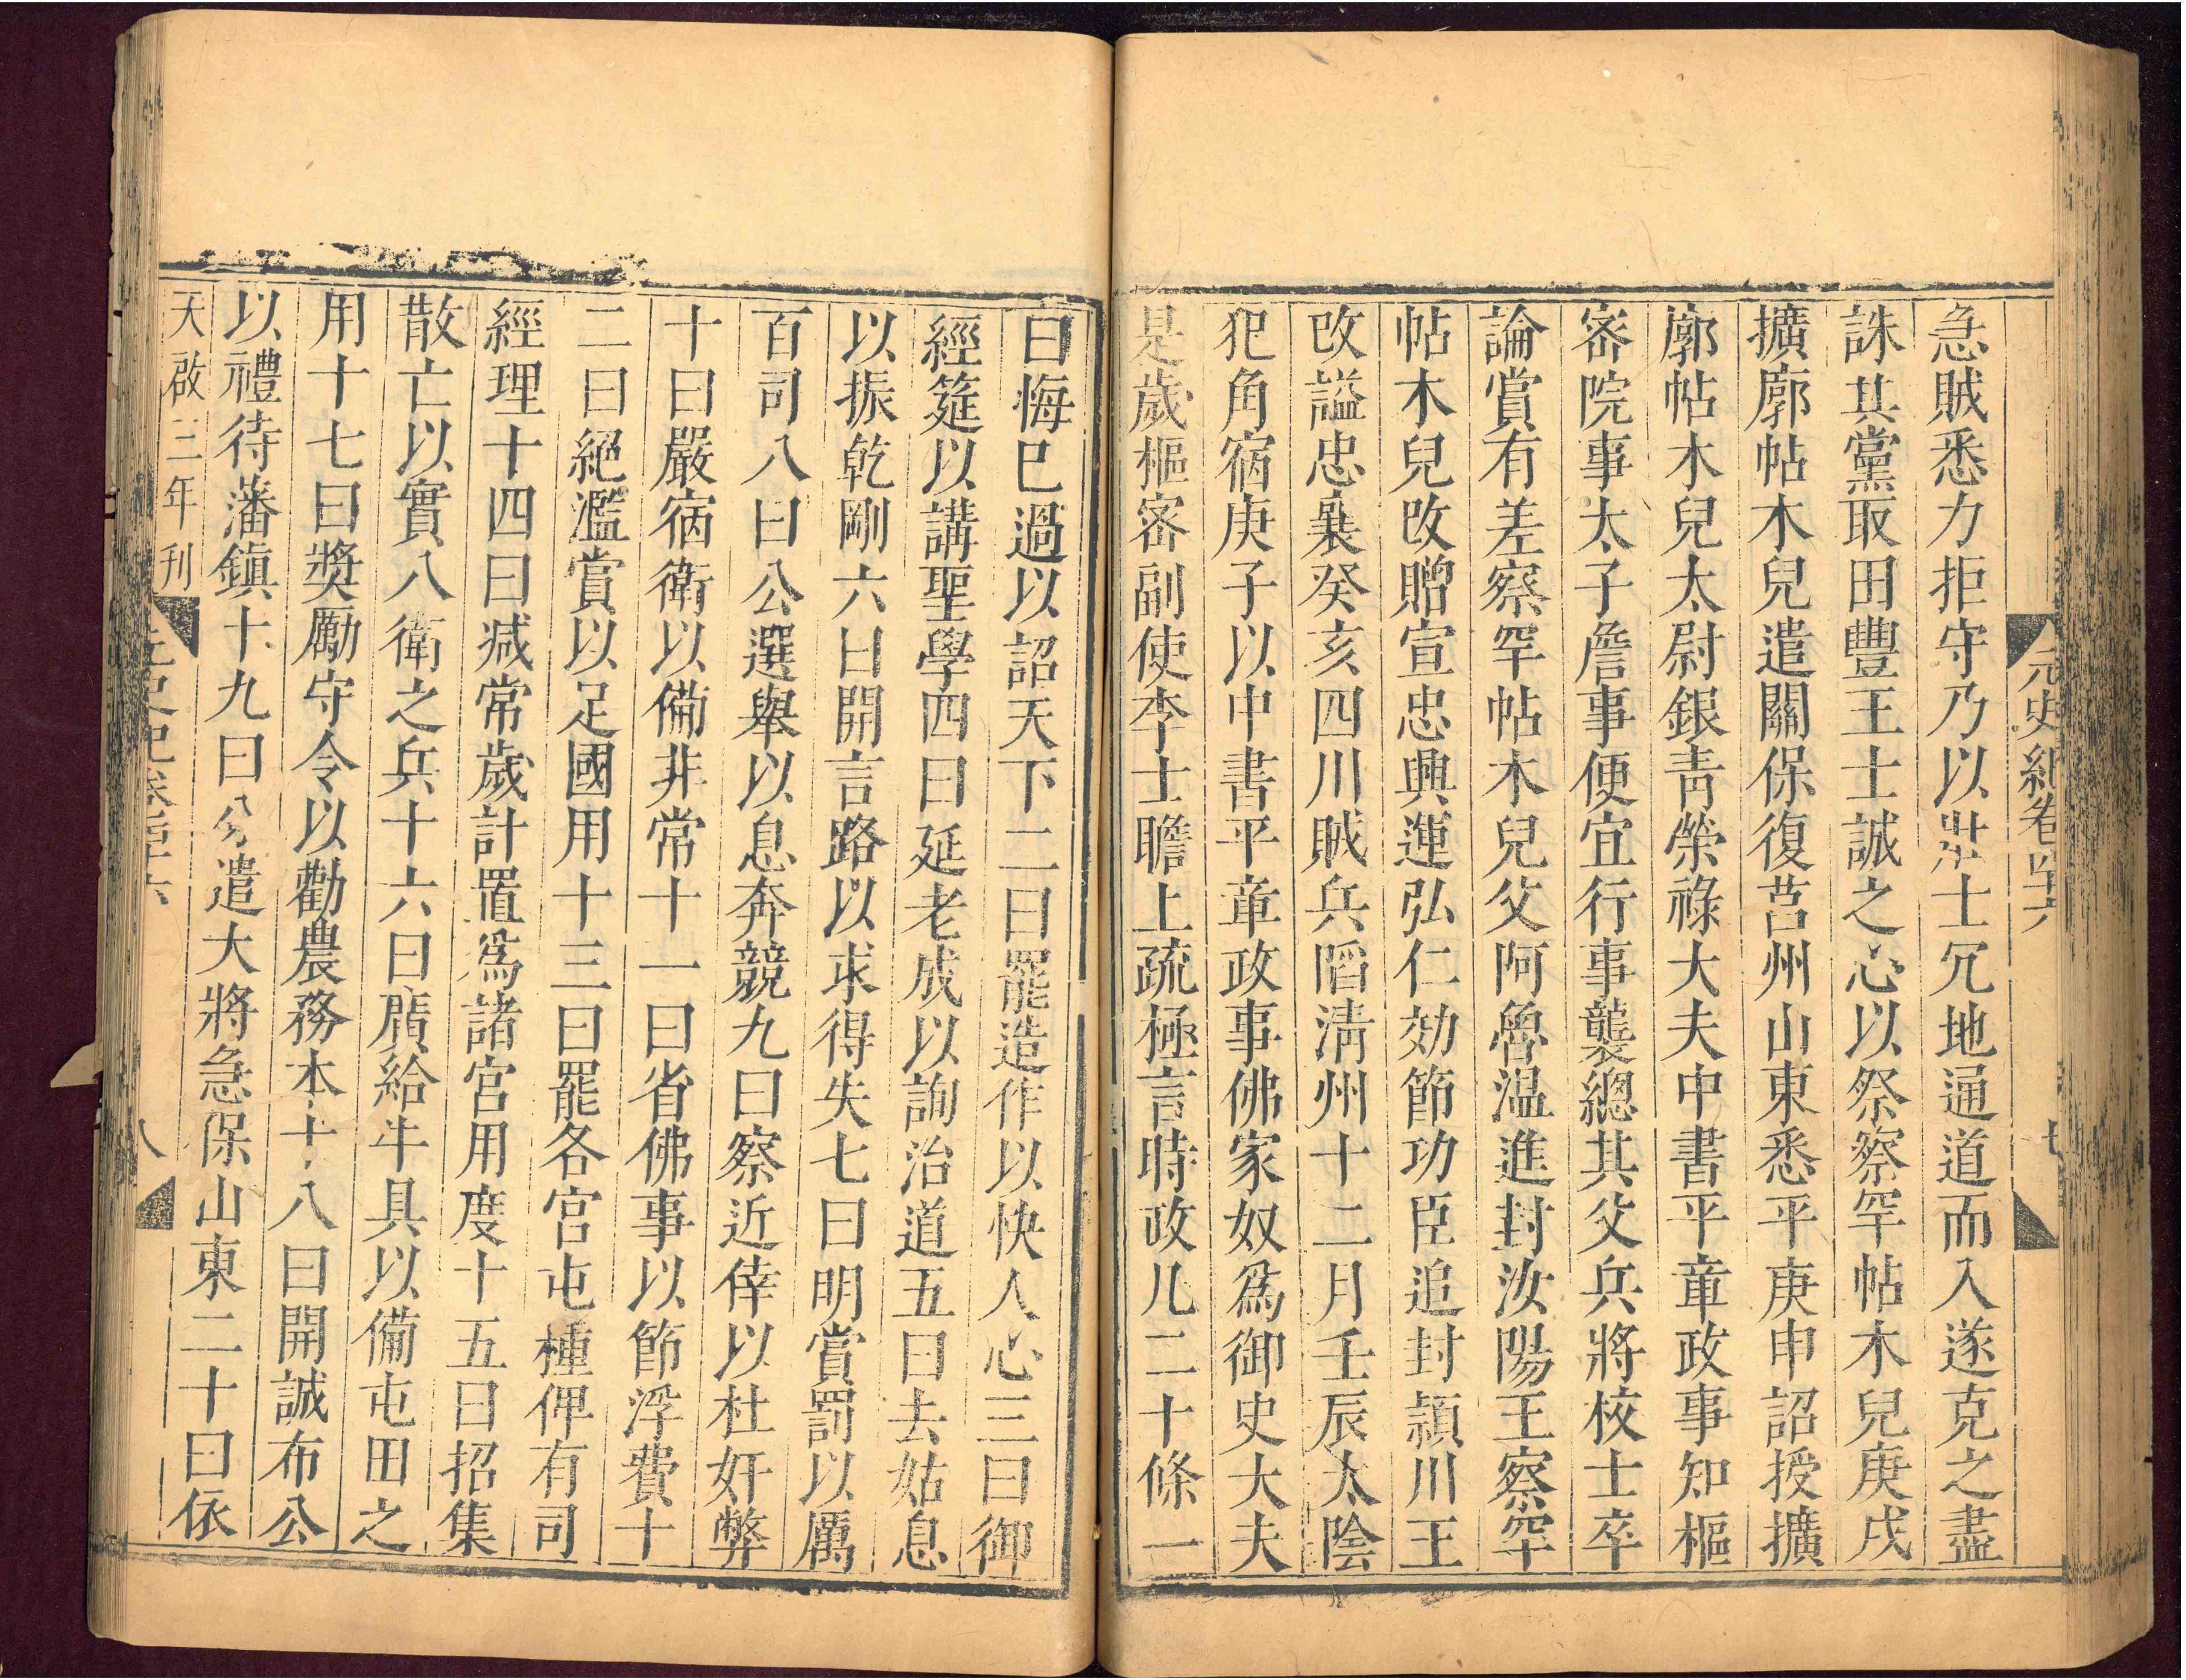 元史紀卷四十六
七
急賊悉力拒守乃以壯士冗地通道而入遂克之盡
誅其黨取田豐王士誠之心以祭察罕帖木兒庚戌
擴廓帖木兒遣關保復莒州山東悉平庚申詔授擴
廓帖木兒太尉銀青榮祿大夫中書平章政事知樞
密院事太子詹事便宜行事襲總其父兵將校士卒
論賞有差察罕帖木兒父阿魯溫進封汝陽王察罕
帖木兒改贈宣忠興運弘仁効節功臣追封頴川王
改謚忠襄癸亥四川賊兵陷清州十二月壬辰太陰
犯角宿庚子以中書平章政事佛家奴爲御史大夫
是歲樞密副使李士瞻上疏極言時政凡二十條一
曰悔已過以詔天下二曰罷造作以快人心三曰御
經筵以講聖學四曰延老成以詢治道五曰去姑息
以振乾剛六曰開言路以求得失七曰明賞罰以厲
百司八曰公選舉以息奔競九曰察近倖以杜奸弊
十曰嚴宿衛以備非常十一曰省佛事以節浮費十
二曰絕濫賞以足國用十三曰罷各宮屯種俾有司
經理十四曰減常歲計置爲諸宮用度十五曰招集
散亡以實八衛之兵十六曰廣給牛具以備屯田之
用十七曰獎勵守令以勸農務本十八曰開誠布公
以禮待藩鎮十九曰分遣大將急保山東二十曰依
天啟三年刊
元史紀卷四十六
八